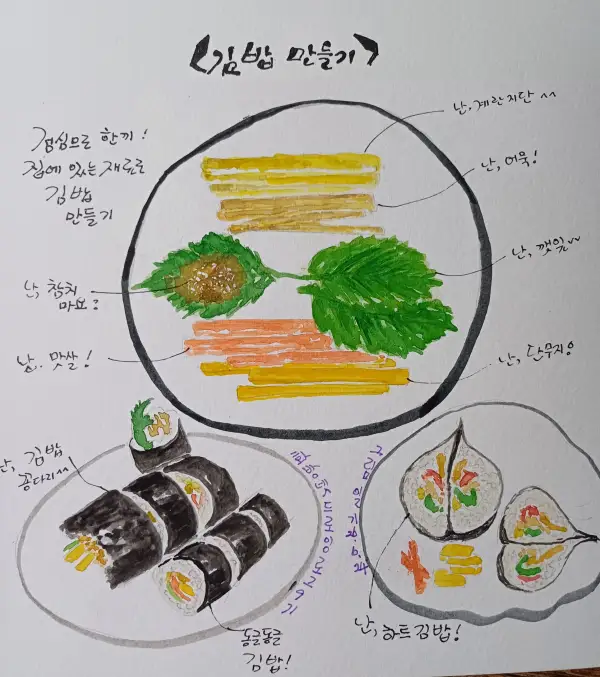 <김밥 만들기>
점심으로 한끼!
집에 있는 재료로
김밥
만들기
난, 계란지단 ^^
난, 어묵!
난, 깻잎~
난, 참치
마요!
난, 맛살!
난, 단무지!
난, 김밥
꽁다리^^
동글동글
김밥!
난, 하트김밥!